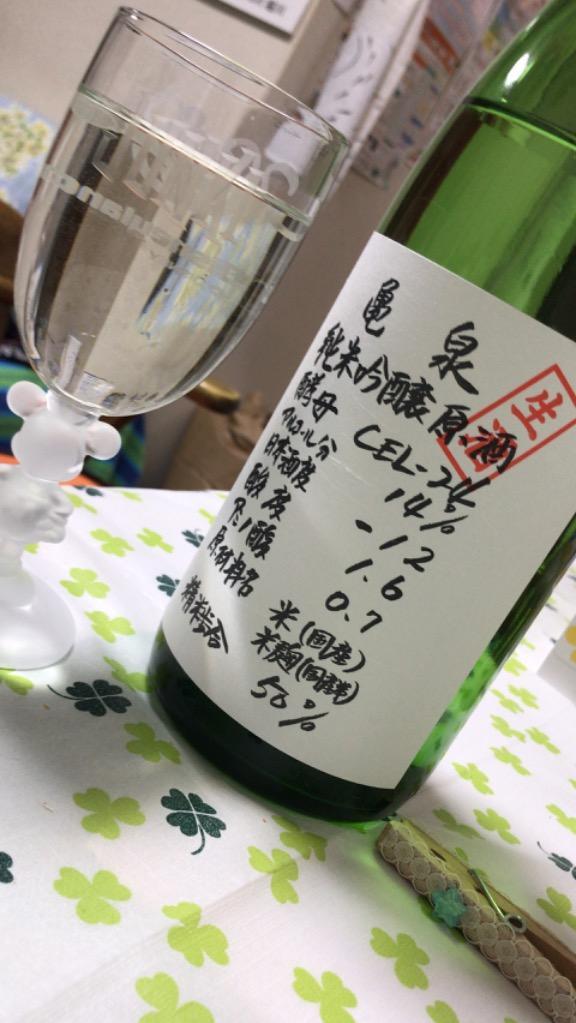 亀泉
純米吟醸原酒
生酒
酵母 CEL-24
アルコール分 14%
日本酒度 -12
酸度 1.6
アミノ酸 0.7
原材料名 米(国産)
米麹(国産米)
精米歩合 50%